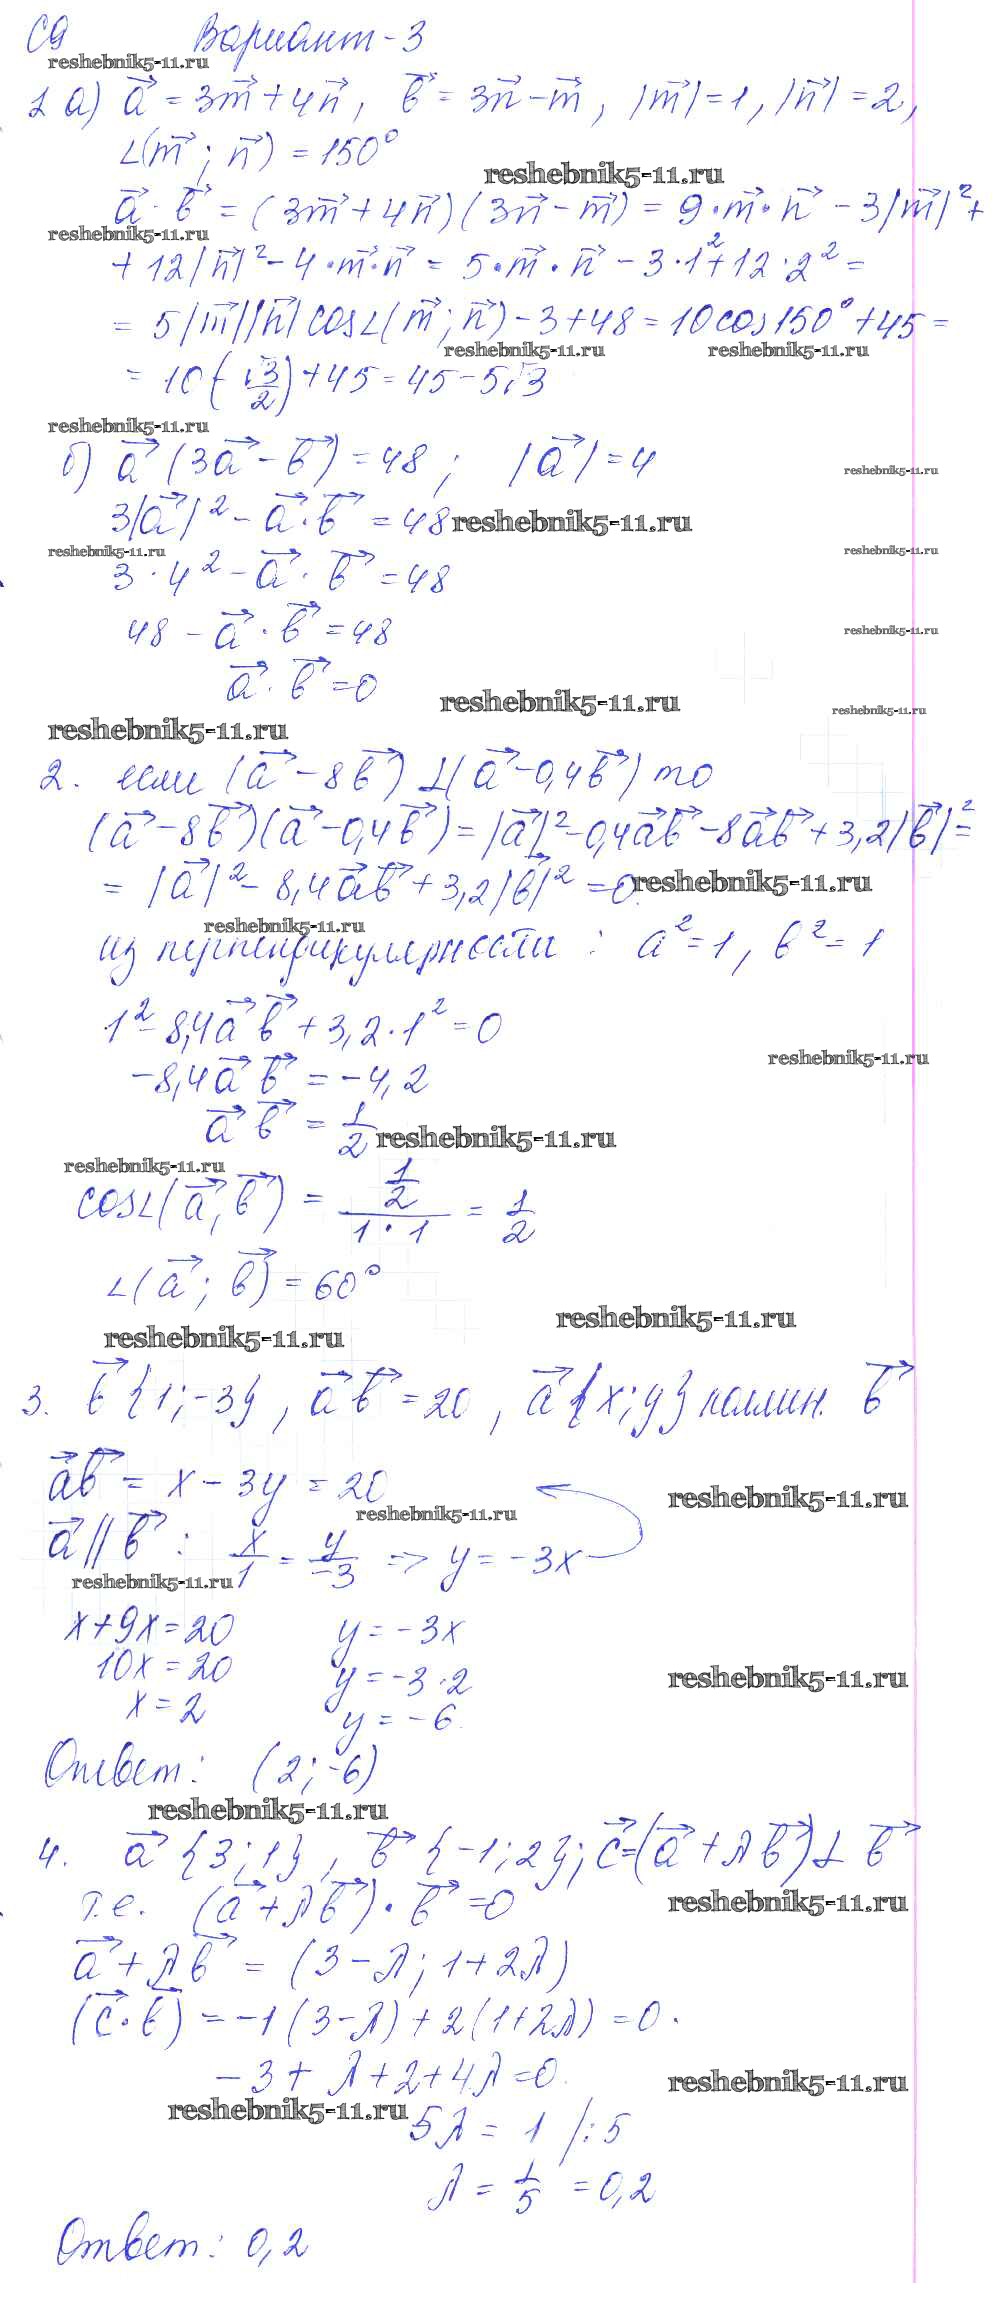 С9 Вариант-3
reshebnik5-11.ru
1 а) a⃗ = 3m⃗ + 4n⃗, b⃗ = 3n⃗ - m⃗, |m⃗| = 1, |n⃗| = 2,
∠(m⃗; n⃗) = 150°
reshebnik5-11.ru
a⃗ · b⃗ = (3m⃗ + 4n⃗)(3n⃗ - m⃗) = 9·m⃗·n⃗ - 3|m⃗|² +
reshebnik5-11.ru
+ 12|n⃗|² - 4·m⃗·n⃗ = 5·m⃗·n⃗ - 3·1² + 12·2² =
= 5|m⃗||n⃗| cos∠(m⃗; n⃗) - 3 + 48 = 10cos150° + 45 =
reshebnik5-11.ru reshebnik5-11.ru
= 10(-√3/2) + 45 = 45 - 5√3
reshebnik5-11.ru
б) a⃗(3a⃗ - b⃗) = 48; |a⃗| = 4
reshebnik5-11.ru
3|a⃗|² - a⃗·b⃗ = 48
reshebnik5-11.ru
reshebnik5-11.ru reshebnik5-11.ru
3·4² - a⃗·b⃗ = 48
48 - a⃗·b⃗ = 48
reshebnik5-11.ru
a⃗·b⃗ = 0
reshebnik5-11.ru
reshebnik5-11.ru
reshebnik5-11.ru
2. если (a⃗ - 8b⃗) ⊥ (a⃗ - 0,4b⃗) то
(a⃗ - 8b⃗)(a⃗ - 0,4b⃗) = |a⃗|² - 0,4a⃗b⃗ - 8a⃗b⃗ + 3,2|b⃗|² =
= |a⃗|² - 8,4a⃗b⃗ + 3,2|b⃗|² = 0
reshebnik5-11.ru
reshebnik5-11.ru
из перпендикулярности: a² = 1, b² = 1
1² - 8,4a⃗b⃗ + 3,2·1² = 0
reshebnik5-11.ru
-8,4a⃗b⃗ = -4,2
a⃗b⃗ = 1/2
reshebnik5-11.ru
reshebnik5-11.ru
cos∠(a⃗, b⃗) = (1/2)/(1·1) = 1/2
∠(a⃗; b⃗) = 60°
reshebnik5-11.ru
reshebnik5-11.ru
3. b⃗{1; -3}, a⃗b⃗ = 20, a⃗{x; y} коллин. b⃗
a⃗b⃗ = x - 3y = 20
reshebnik5-11.ru
reshebnik5-11.ru
a⃗ || b⃗: x/1 = y/-3 => y = -3x
reshebnik5-11.ru
x + 9x = 20 y = -3x
10x = 20 y = -3·2
reshebnik5-11.ru
x = 2 y = -6.
Ответ: (2; -6)
reshebnik5-11.ru
4. a⃗{3; 1}, b⃗{-1; 2}; c⃗=(a⃗ + λb⃗) ⊥ b⃗
reshebnik5-11.ru
т.е. (a⃗ + λb⃗)·b⃗ = 0
a⃗ + λb⃗ = (3 - λ; 1 + 2λ)
(c⃗·b⃗) = -1(3 - λ) + 2(1 + 2λ) = 0.
-3 + λ + 2 + 4λ = 0.
reshebnik5-11.ru
reshebnik5-11.ru
5λ = 1 /:5
λ = 1/5 = 0,2
Ответ: 0,2